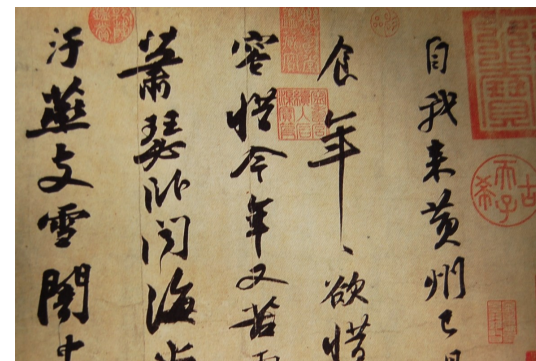 自我來黃州已
食年、欲惜
容惜今年又苦
蕭瑟卧聞海
汙燕支雪闇中
古希天子